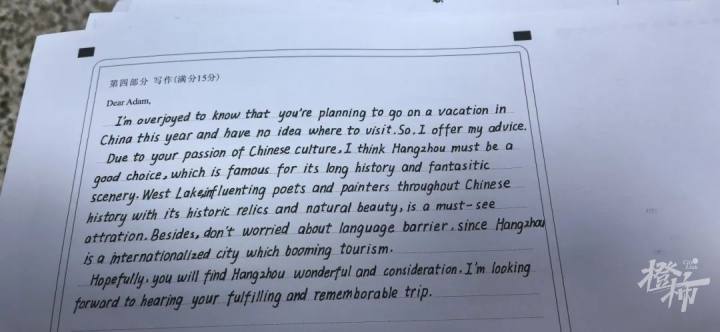 第四部分 写作(满分15分)
Dear Adam,
I'm overjoyed to know that you're planning to go on a vacation in
China this year and have no idea where to visit. So, I offer my advice.
Due to your passion of Chinese culture, I think Hangzhou must be a
good choice, which is famous for its long history and fantasitic
scenery. West Lake, influenting poets and painters throughout Chinese
history with its historic relics and natural beauty, is a must-see
attration. Besides, don't worried about language barrier, since Hangzhou
is a internationalized city which booming tourism.
Hopefully, you will find Hangzhou wonderful and consideration. I'm looking
forward to hearing your fulfilling and rememborable trip.
橙柿